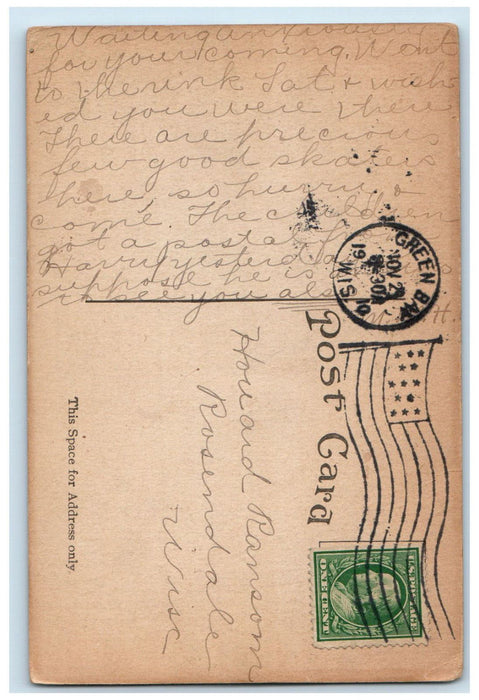 Waiting anxiously
for your coming. Went
to the rink Sat & wish
ed you were there
There are precious
few good skaters
here, so hurry &
come. The children
got a postal
Harry yesterday
suppose he is
to see you also
M. H.
GREEN BAY
WIS
NOV 2
30
1910
Post Card
Howard Ransom
Rosendale
Wisc
This Space for Address only.
U.S. POSTAGE
ONE CENT